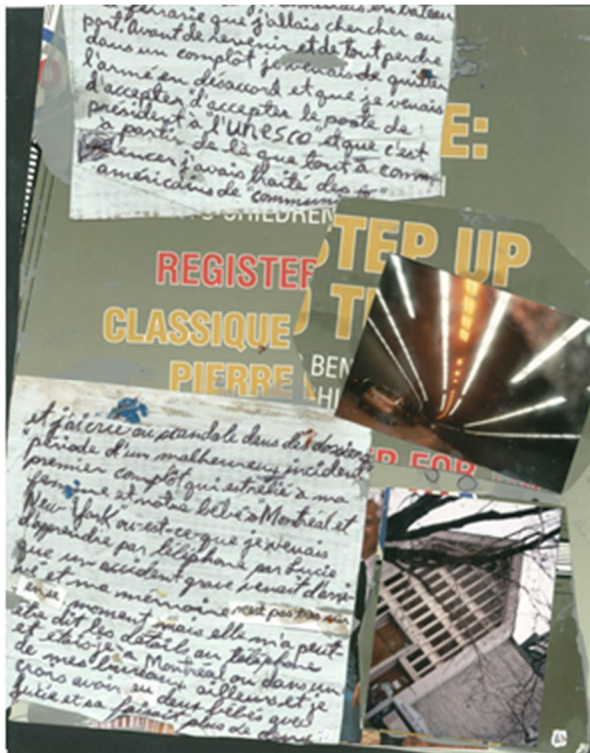 ferrarie que j'allais chercher au
port. Avant de revenir et de tout perdre
dans un complot je venais de quitter
l'armé en désacord et que je venais
d'accepter d'accepter le poste de
président à l'Unesco" et que c'est
à partir de là que tout à comm
encer j'avais traité des
américains de "commun
E:
CHILDREN
STEP UP
REGISTER
CLASSIQUE
PIERRE
BEN
HI
ER FOR
et j'ai crié au scandale dans les dossiers
période d'un malheureux incident
premier complot qui entretie à ma
femme et notre bébé à Montréal et
New-York ou est-ce que je venais
d'apprendre par téléphone par Lucie
que un accident grave venait d'arri-
vé et ma mémoire n'est pas très sur
en ce moment, mais elle m'a peut
être dit les détails au téléphone
et étais-je à Montréal ou dans un
de mes bureaux ailleurs et je
crois avoir eu deux bébés avec
Lucie et sa faisait plus de